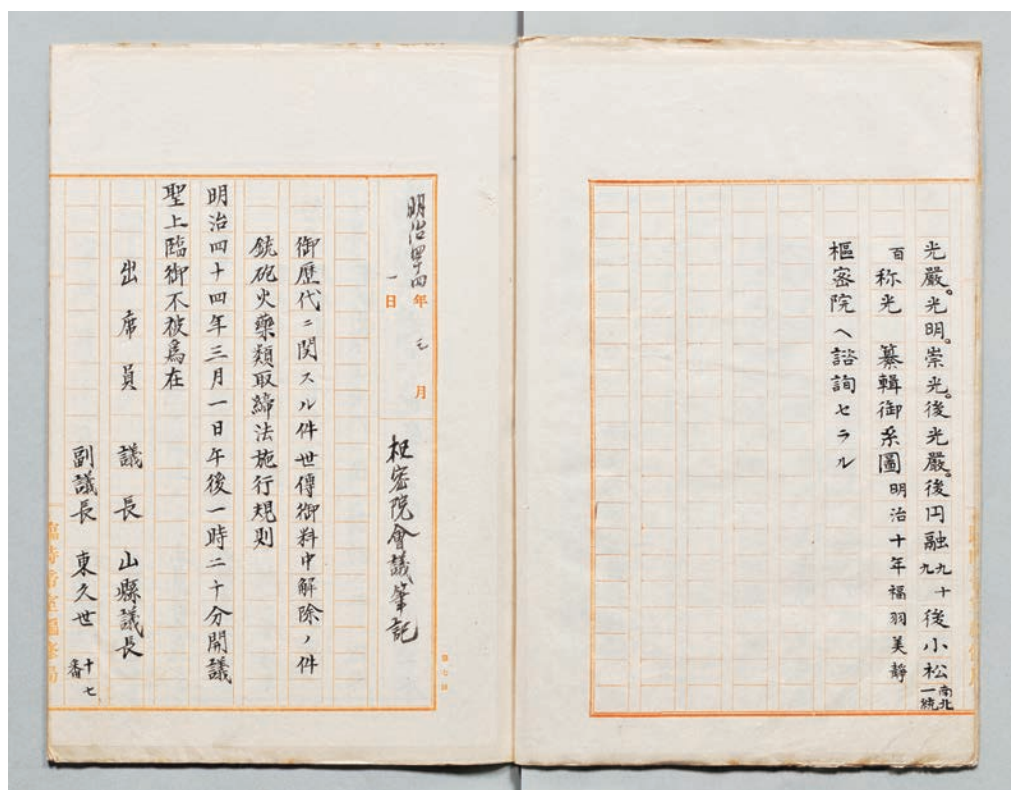 光嚴。光明。崇光。後光嚴。後円融九十九後小松南北一統
百称光　纂輯御系圖明治十年福羽美靜
樞密院ヘ諮詢セラル
明治四十四年三月一日　枢密院會議筆記
御歴代ニ関スル件世傳御料中解除ノ件
銃砲火藥類取締法施行規則
明治四十四年三月一日午後一時二十分開議
聖上臨御不被爲在
出席員　議長　山縣議長
副議長　東久世　十七番